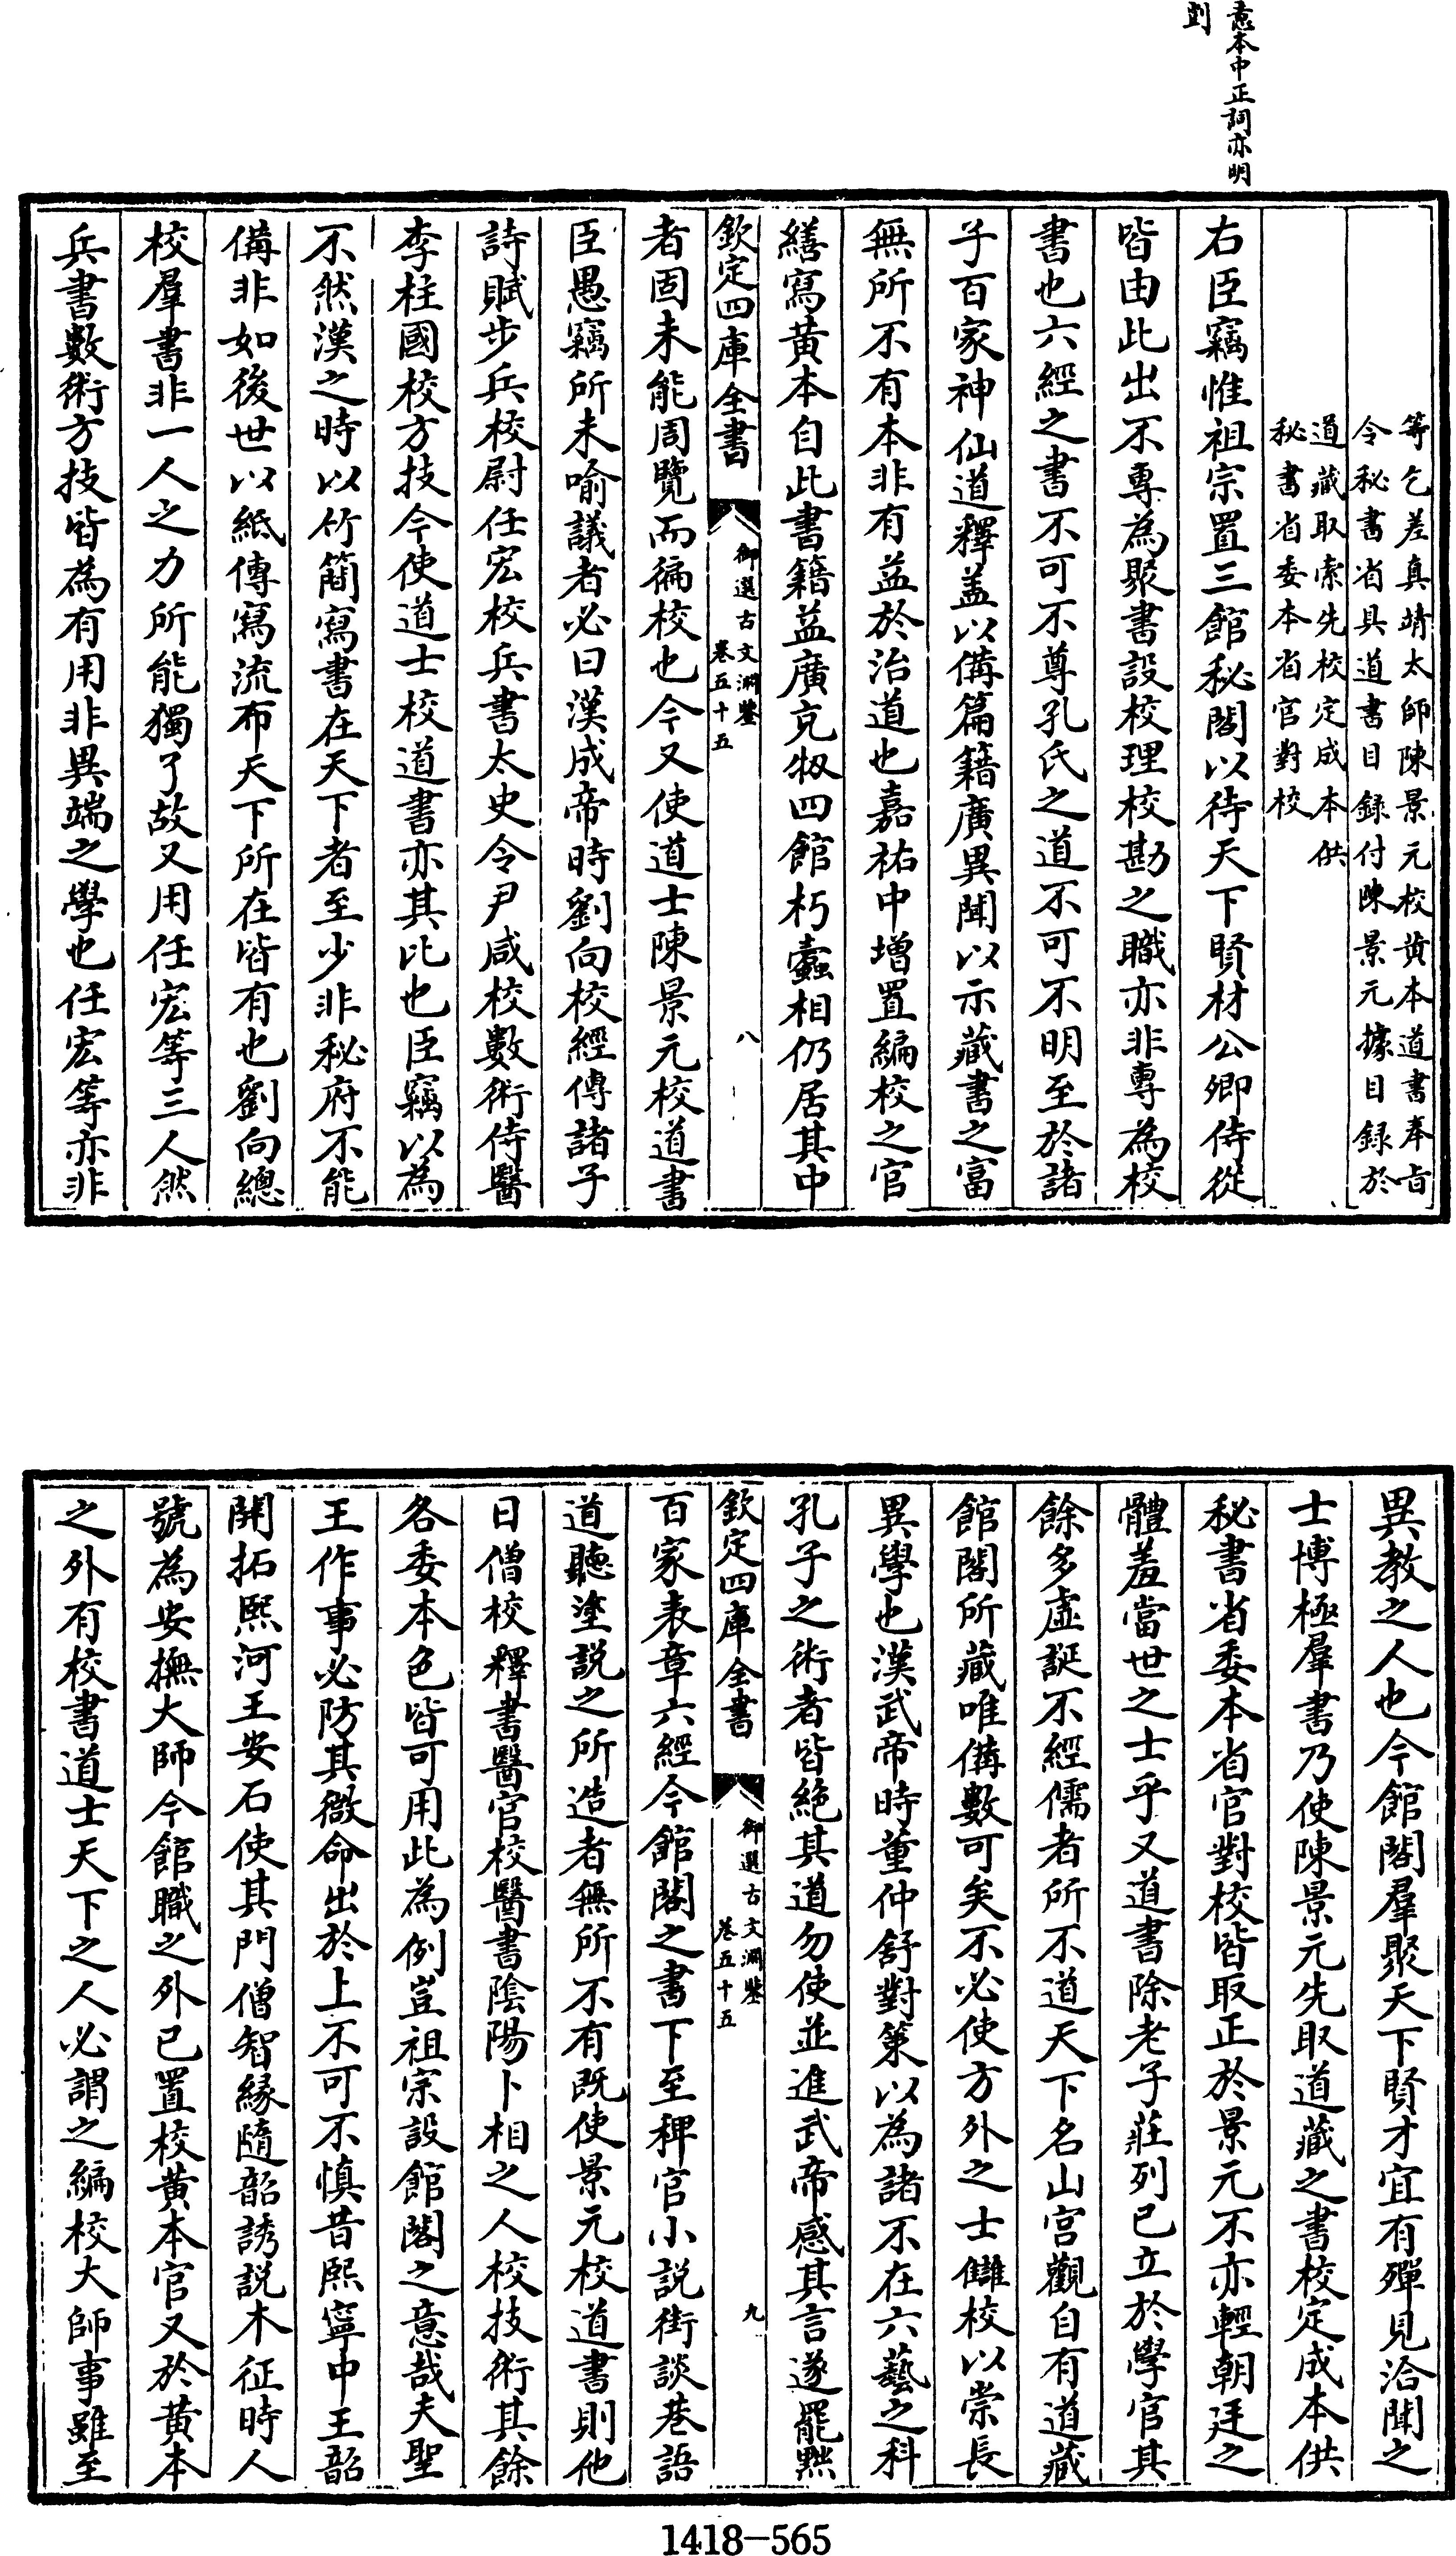 意本中正詞亦明
剴
等乞差真靖太師陳景元校黄本道書奉旨
令秘書省具道書目録付陳景元據目録於
道藏取索先校定成本供
秘書省委本省官對校
右臣竊惟祖宗置三館秘閣以待天下賢材公卿侍從
皆由此出不專為聚書設校理校勘之職亦非專為校
書也六經之書不可不尊孔氏之道不可不明至於諸
子百家神仙道釋盖以備篇籍廣異聞以示藏書之富
無所不有本非有益於治道也嘉祐中増置編校之官
繕寫黄本自此書籍益廣充牣四館朽蠧相仍居其中
欽定四庫全書
御選古文淵鑒
卷五十五
八
者固未能周覽而徧校也今又使道士陳景元校道書
臣愚竊所未喻議者必曰漢成帝時劉向校經傳諸子
詩賦步兵校尉任宏校兵書太史令尹咸校數術侍醫
李柱國校方技今使道士校道書亦其比也臣竊以為
不然漢之時以竹簡寫書在天下者至少非秘府不能
備非如後世以紙傳寫流布天下所在皆有也劉向總
校羣書非一人之力所能獨了故又用任宏等三人然
兵書數術方技皆為有用非異端之學也任宏等亦非
異教之人也今館閣羣聚天下賢才宜有殫見洽聞之
士博極羣書乃使陳景元先取道藏之書校定成本供
秘書省委本省官對校皆取正於景元不亦輕朝廷之
體羞當世之士乎又道書除老子莊列已立於學官其
餘多虚誕不經儒者所不道天下名山宮觀自有道藏
館閣所藏唯備數可矣不必使方外之士讎校以崇長
異學也漢武帝時董仲舒對策以為諸不在六藝之科
孔子之術者皆絶其道勿使並進武帝感其言遂罷黜
欽定四庫全書
御選古文淵鑒
卷五十五
九
百家表章六經今館閣之書下至稗官小説街談巷語
道聽塗説之所造者無所不有既使景元校道書則他
日僧校釋書醫官校醫書陰陽卜相之人校技術其餘
各委本色皆可用此為例豈祖宗設館閣之意哉夫聖
王作事必防其微命出於上不可不慎昔熙寧中王韶
開拓熙河王安石使其門僧智縁隨韶誘説木征時人
號為安撫大師今館職之外已置校黄本官又於黄本
之外有校書道士天下之人必謂之編校大師事雖至
1418-565